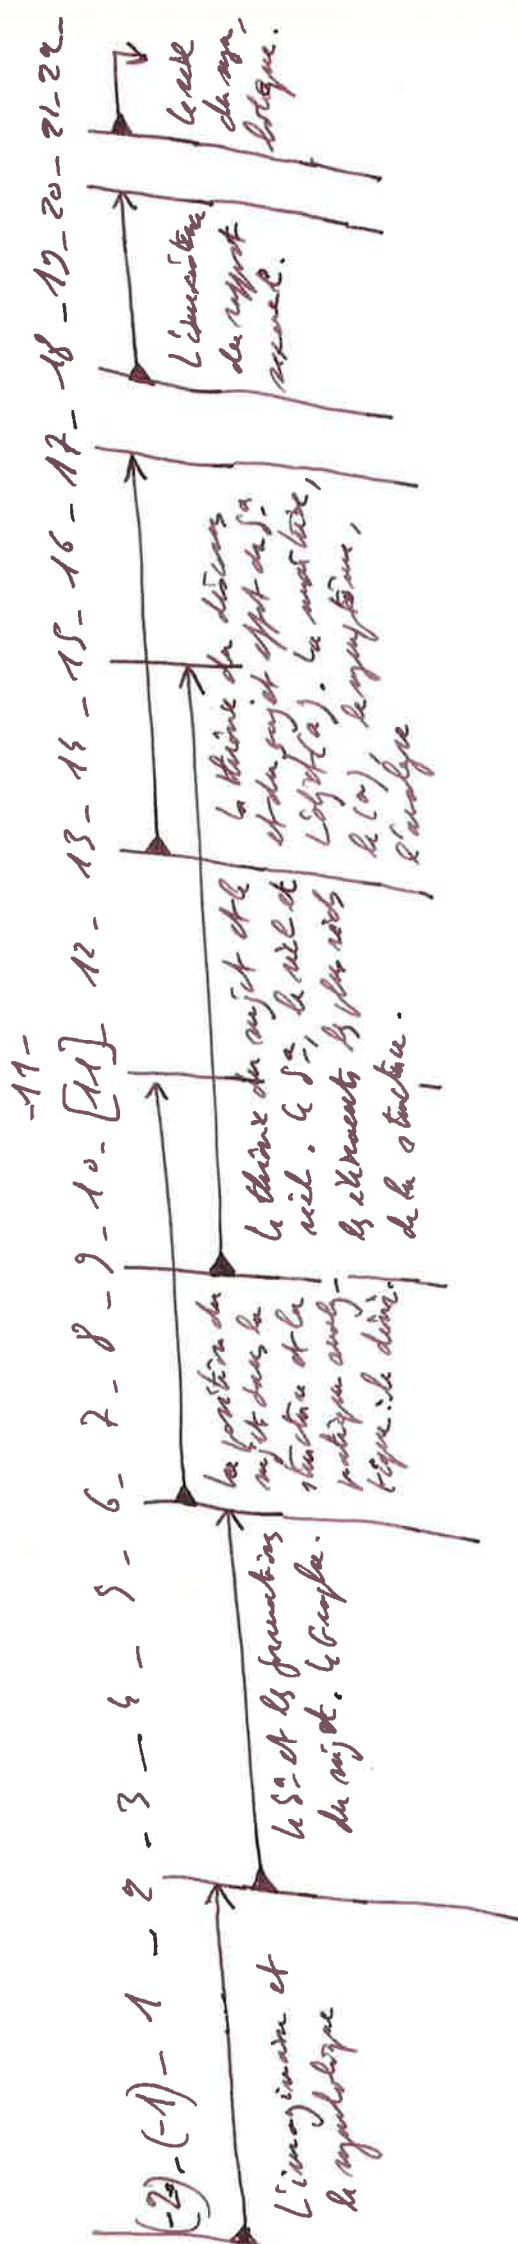 (-2)-(-1)- 1 - 2 - 3 - 4 - 5 - 6 - 7 - 8 - 9 - 10 - [11] - 12 - 13 - 14 - 15 - 16 - 17 - 18 - 19 - 20 - 21 - 22 -
- 11 -
L'imaginaire et
le symbolique
Le Sª et les formations
du sujet. Le Graphe.
La position du
sujet dans la
structure et la
pratique analy-
tique : le désir.
La théorie du sujet et le
réel. Le Sª, le réel et
les éléments les plus réels
de la structure.
La théorie du discours
et du sujet effet du Sª
L'objet (a). La
le (a), le symptôme,
l'analyse
L'inexistence
du rapport
sexuel.
Le réel
du sym-
bolique.